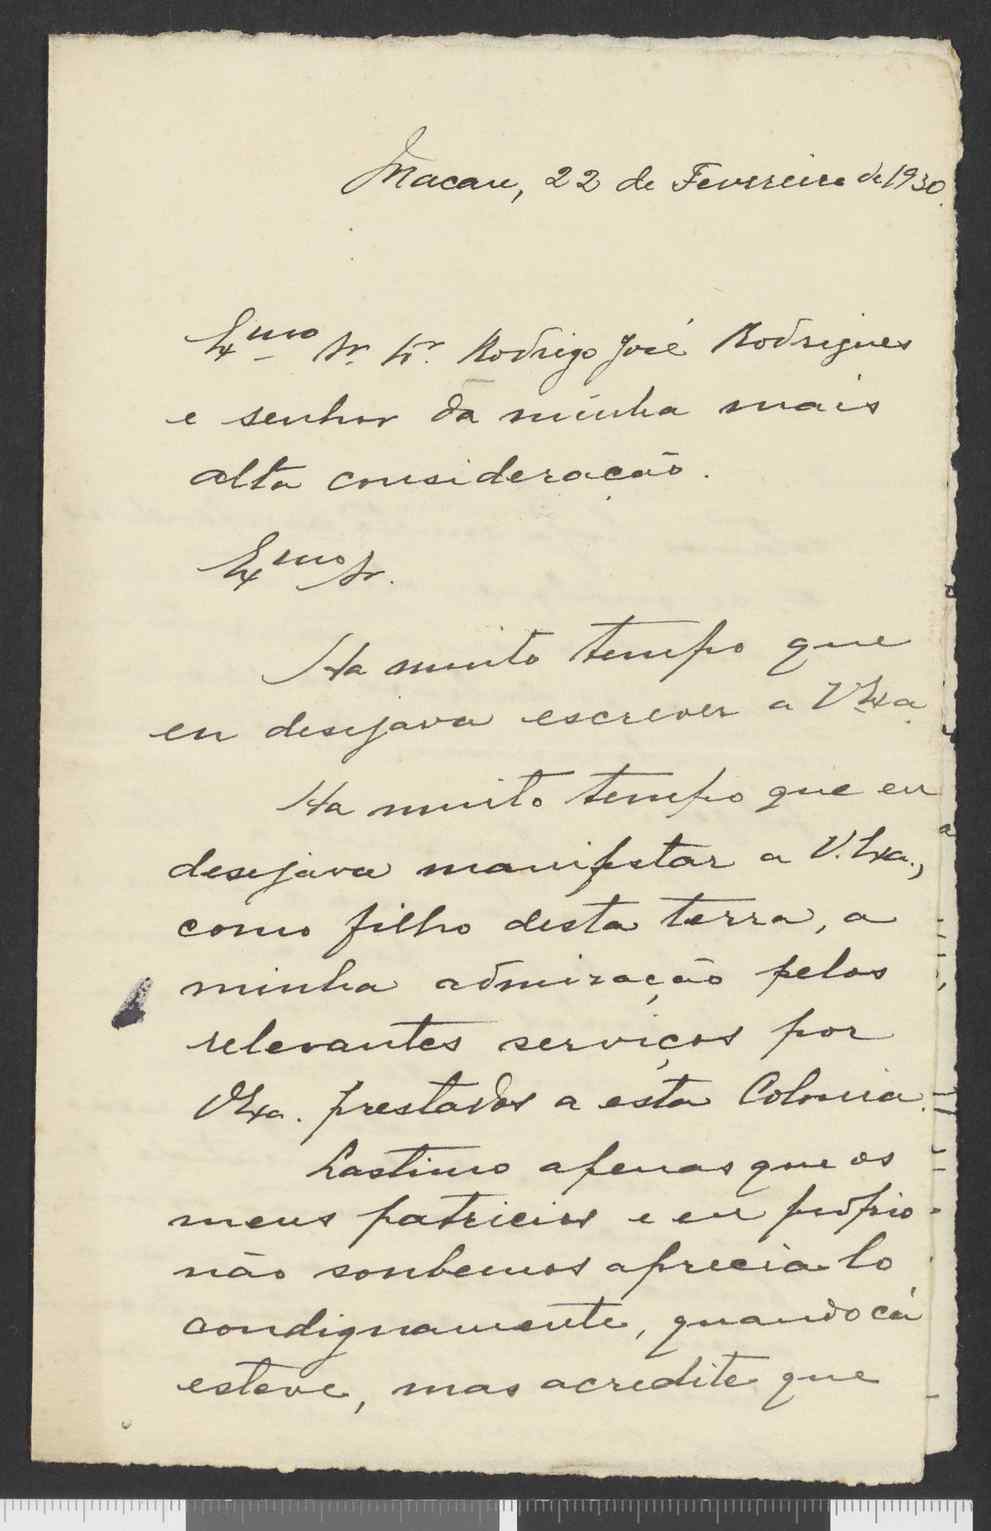 Macau, 22 de Fevereiro de 1930.
Exmo Sr. Dr. Rodrigo José Rodrigues
e senhor da minha mais
alta consideração.
Exmo Sr.
Ha muito tempo que
eu desejava escrever a V Exa.
Ha muito tempo que eu
desejava manifestar a V. Exa.,
como filho desta terra, a
minha admiração pelos
relevantes serviços por
V Exa. prestados a esta Colonia.
Lastimo apenas que os
meus patricios e eu próprio
não soubemos aprecia-lo
condignamente, quando cá
esteve, mas acredite que